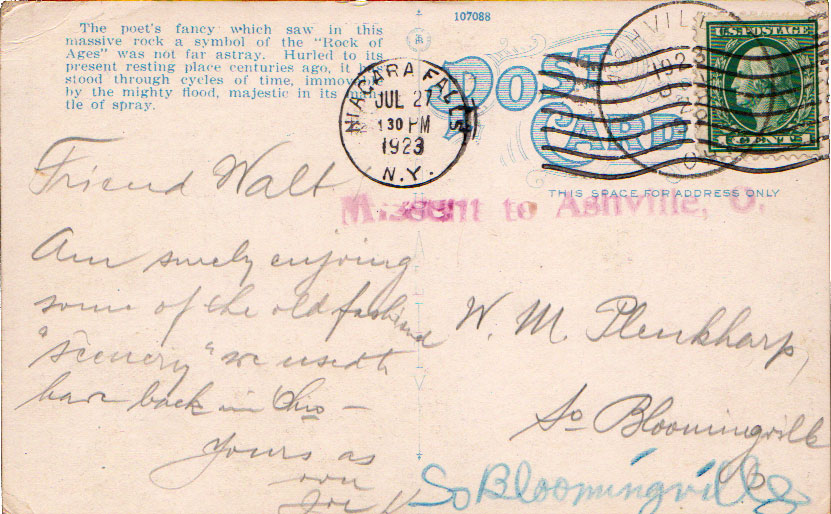 The poet's fancy which saw in this
massive rock a symbol of the "Rock of
Ages" was not far astray. Hurled to its
present resting place centuries ago, it
stood through cycles of time,
by the mighty flood, majestic in its
tle of spray.
107088
POST
CARD
THIS SPACE FOR ADDRESS ONLY
NIAGARA FALLS
JUL 27
1 30 PM
1923
N.Y.
U.S. POSTAGE
Missent to Ashville, O.
Friend Walt
Am surely enjoing
some of the old fashiond
"scenery" we used to
have back in Ohio —
Yours as
Joe
W. M. Plenkharp,
So Bloomingville
O
So Bloomingville